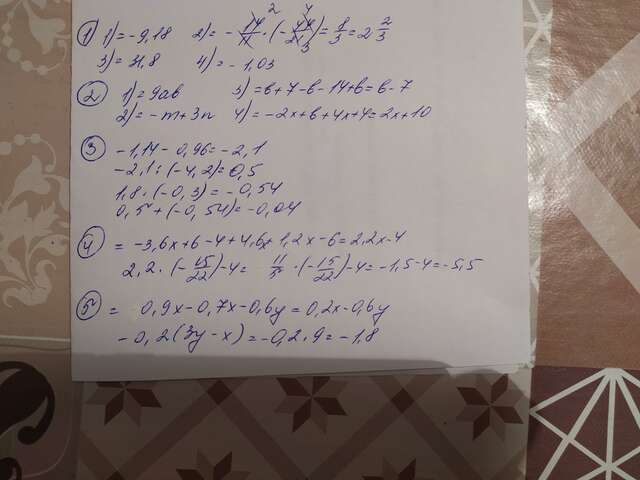 ① 1) = -9,18 2) = - 14/11 · (- 44/21) = 8/3 = 2 2/3
3) = 31,8 4) = -1,03
② 1) = 9ab 3) = b+7-b-14+b = b-7
2) = -m+3n 4) = -2x+6+4x+4 = 2x+10
③ -1,14-0,96 = -2,1
-2,1 : (-4,2) = 0,5
1,8 · (-0,3) = -0,54
0,5 + (-0,54) = -0,04
④ = -3,6x+6-4+4,6x+1,2x-6 = 2,2x-4
2,2 · (-15/22) -4 = 11/5 · (-15/22) -4 = -1,5-4 = -5,5
⑤ = 0,9x-0,7x-0,6y = 0,2x-0,6y
-0,2(3y-x) = -0,2·9 = -1,8